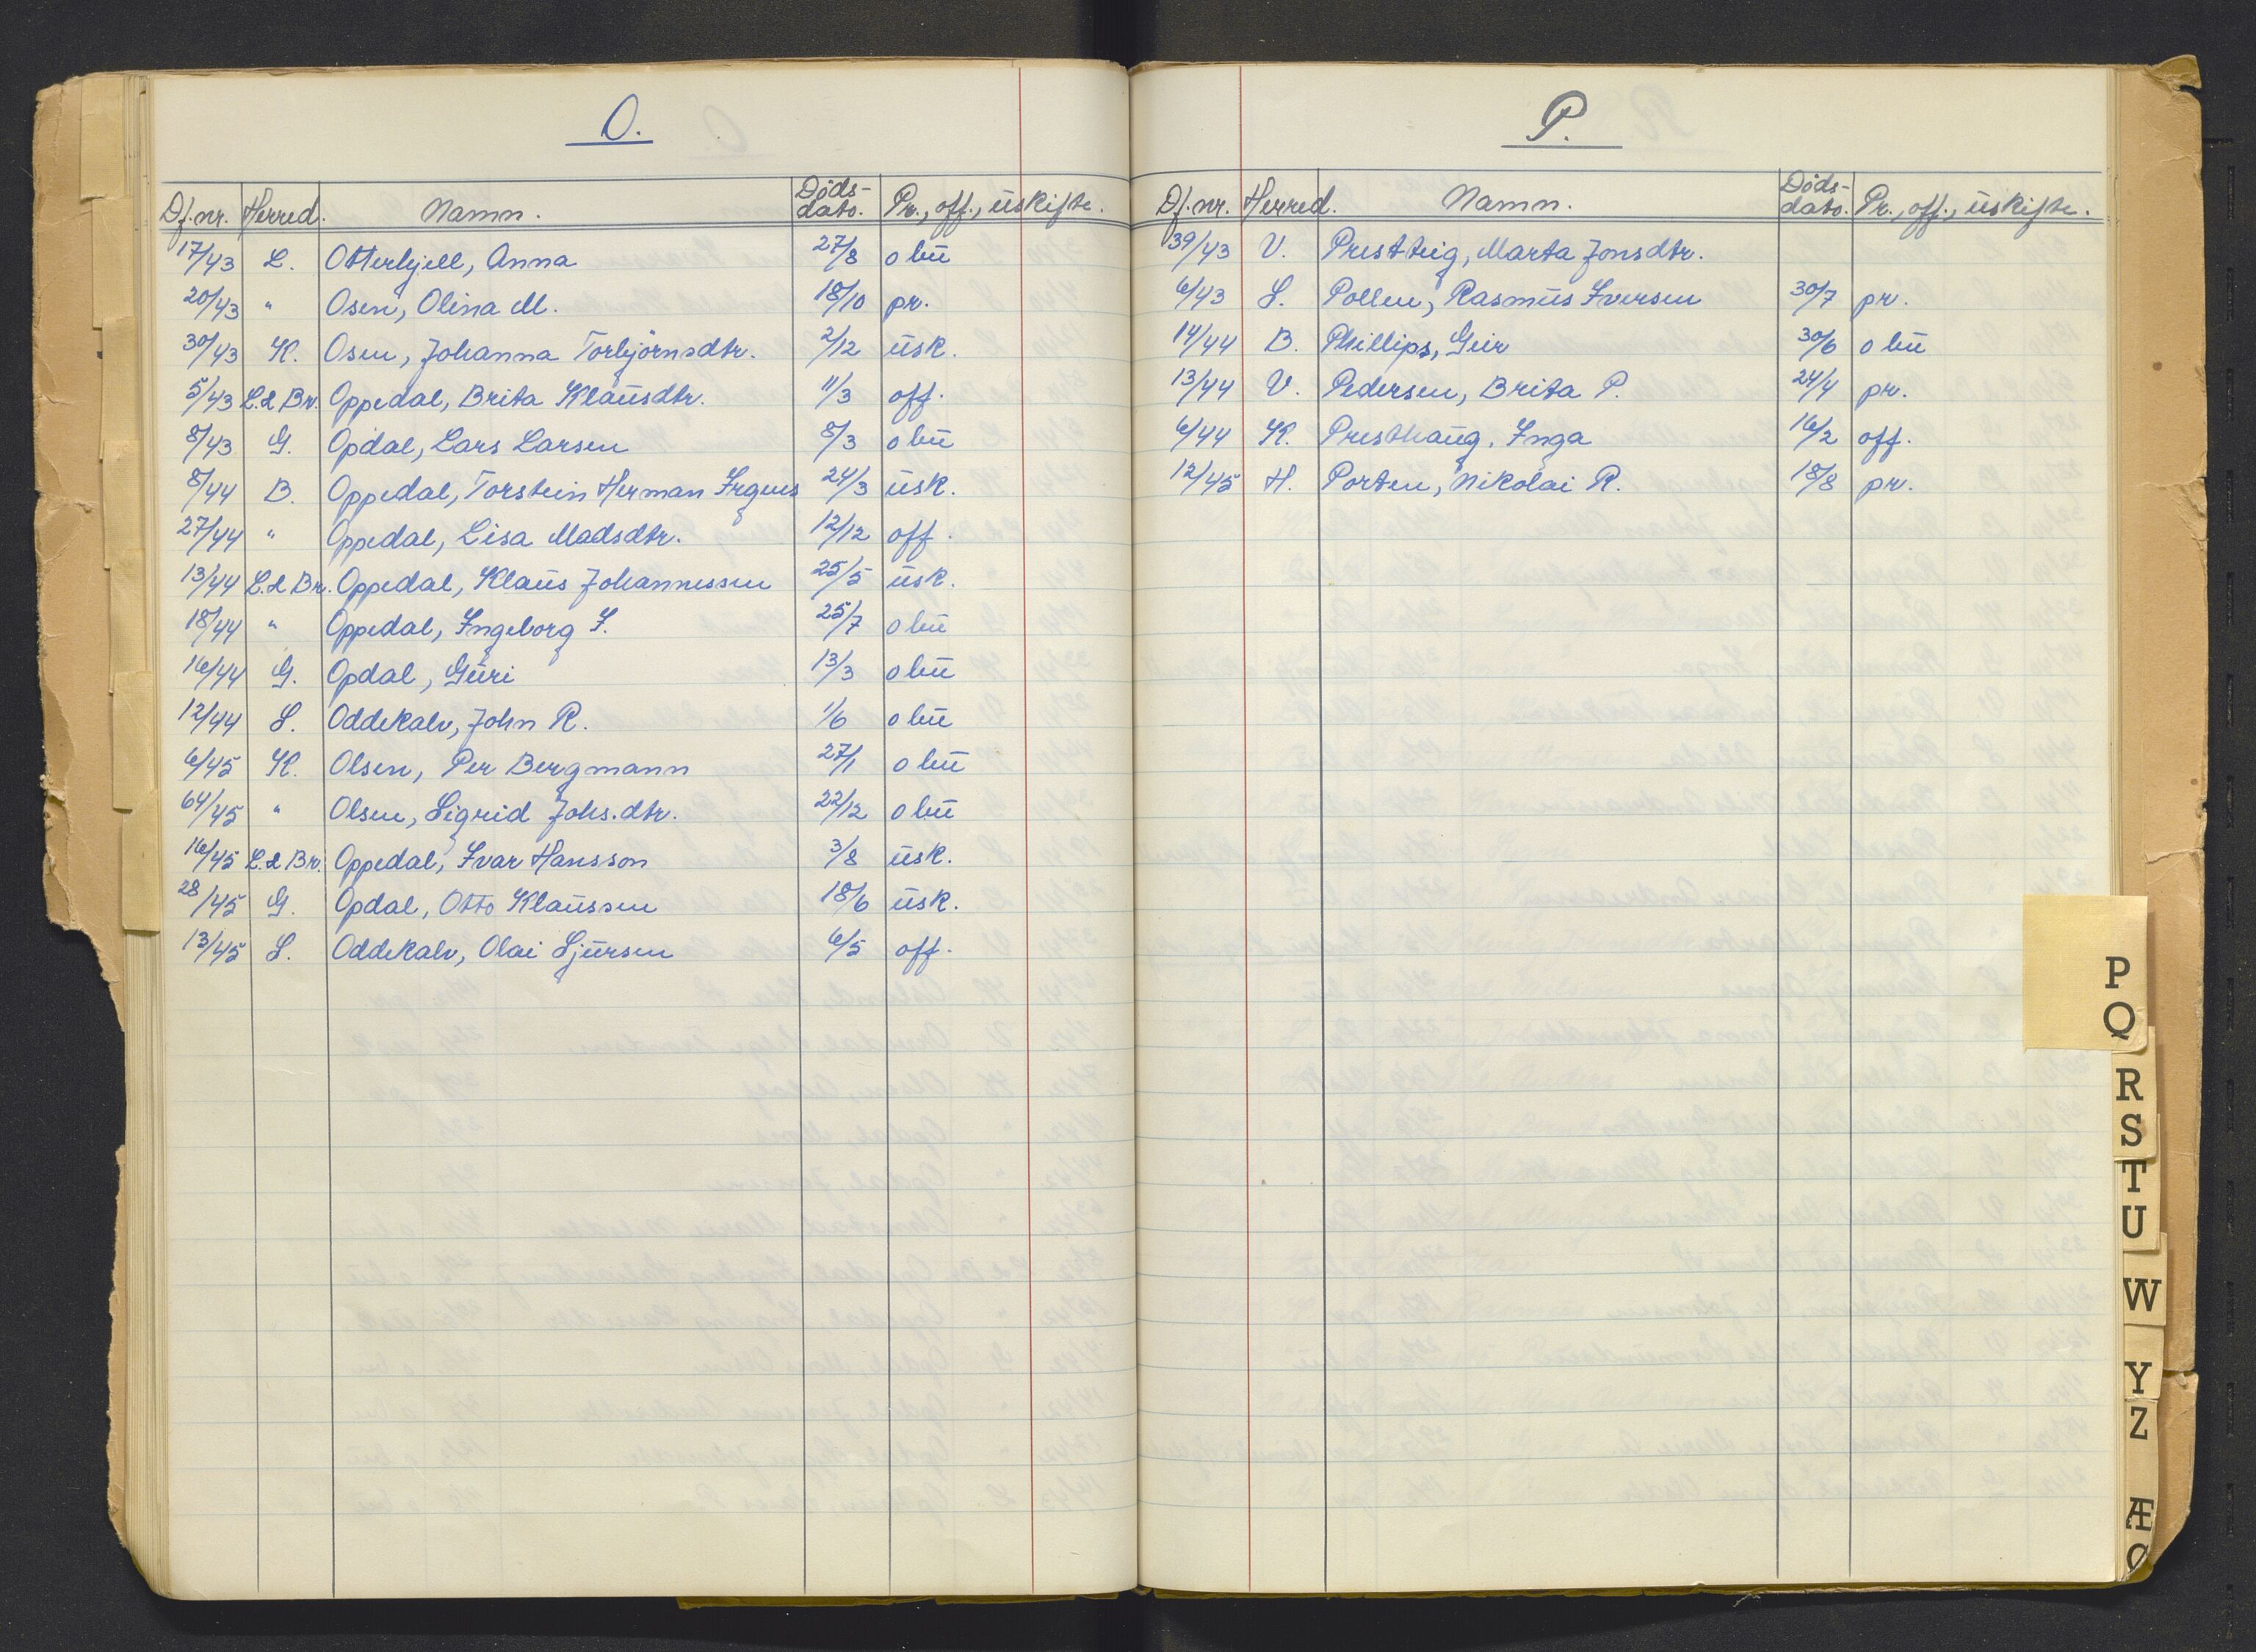 O.
Df.nr. Herred. Namn. Døds-dato. Pr., off., uskifte.
17/43 L. Otterhjell, Anna 27/8 o bu
20/43 " Osen, Olina M. 18/10 pr.
30/43 K. Osen, Johanna Torbjørnsdtr. 2/12 usk.
5/43 L. & Br. Oppedal, Brita Klausdtr. 11/3 off.
8/43 G. Opdal, Lars Larsen 8/3 o bu
8/44 B. Oppedal, Torstein Herman Irgens 24/3 usk.
27/44 " Oppedal, Lisa Madsdtr. 12/12 off.
13/44 L. & Br. Oppedal, Klaus Johannessen 25/5 usk.
18/44 " Oppedal, Ingeborg I. 25/7 o bu
16/44 G. Opdal, Guri 13/3 o bu
12/44 S. Oddekalv, John R. 1/6 o bu
6/45 K. Olsen, Per Bergmann 27/1 o bu
64/45 " Olsen, Sigrid Johs.dtr. 22/12 o bu
16/45 L. & Br. Oppedal, Ivar Hansson 3/8 usk.
28/45 G. Opdal, Otto Klaussen 18/6 usk.
13/45 S. Oddekalv, Olai Sjursen 6/5 off.
P.
Df.nr. Herred. Namn. Døds-dato. Pr., off., uskifte.
39/43 V. Prestteig, Marta Jonsdtr.
6/43 S. Pollen, Rasmus Iversen 30/7 pr.
14/44 B. Phillips, Geir 30/6 o bu
13/44 V. Pedersen, Brita P. 24/4 pr.
6/44 K. Presthaug, Inga 16/2 off.
12/45 H. Porten, Nikolai R. 18/8 pr.
P
Q
R
S
T
U
W
Y
Z
Æ